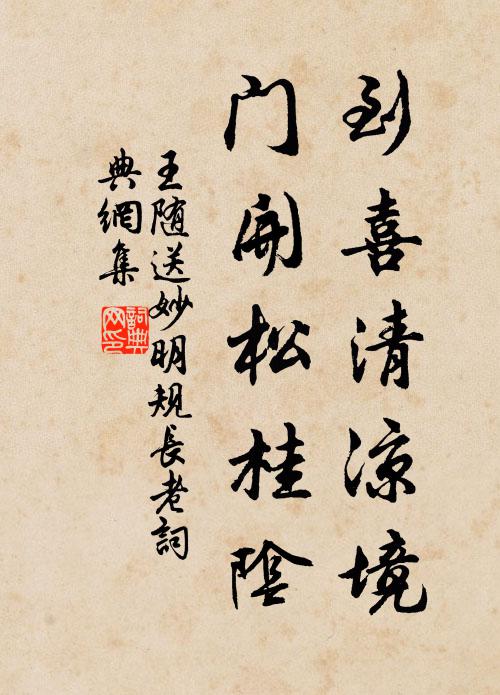 到喜清凉境
门開松桂陰
王随送妙明規長老詞
典網集
詞典网印